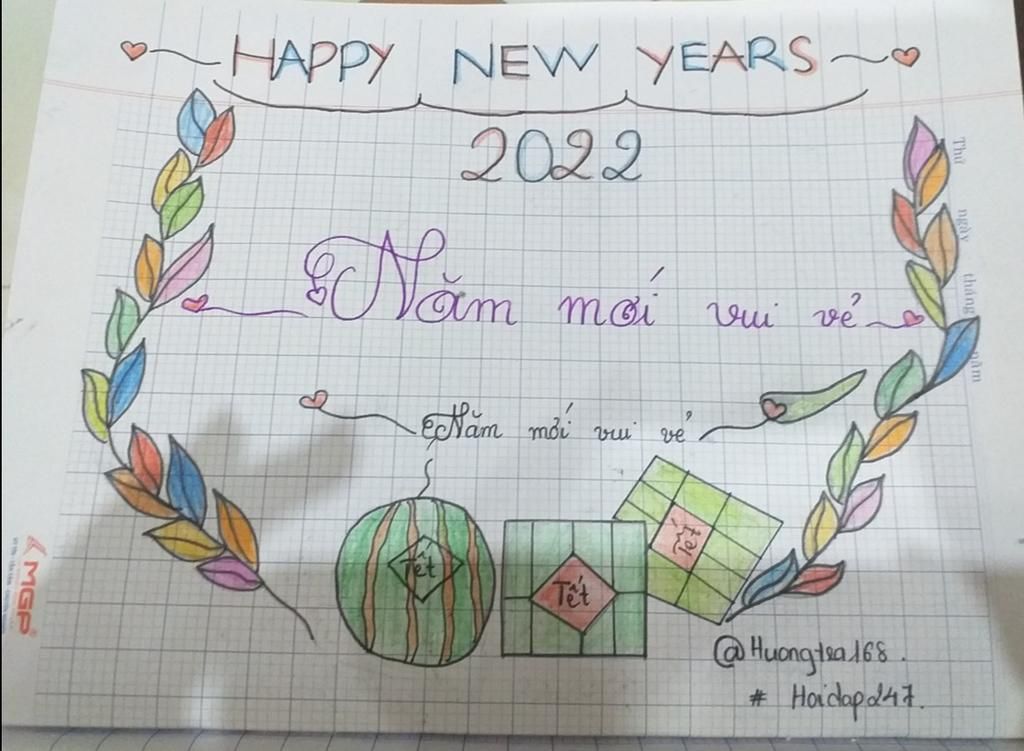 HAPPY NEW YEARS
2022
Năm mới vui vẻ
Năm mới vui vẻ
Tết
Tết
Tết
@Huongtra168.
# Hoidap247.
Thứ ngày tháng năm
MGP